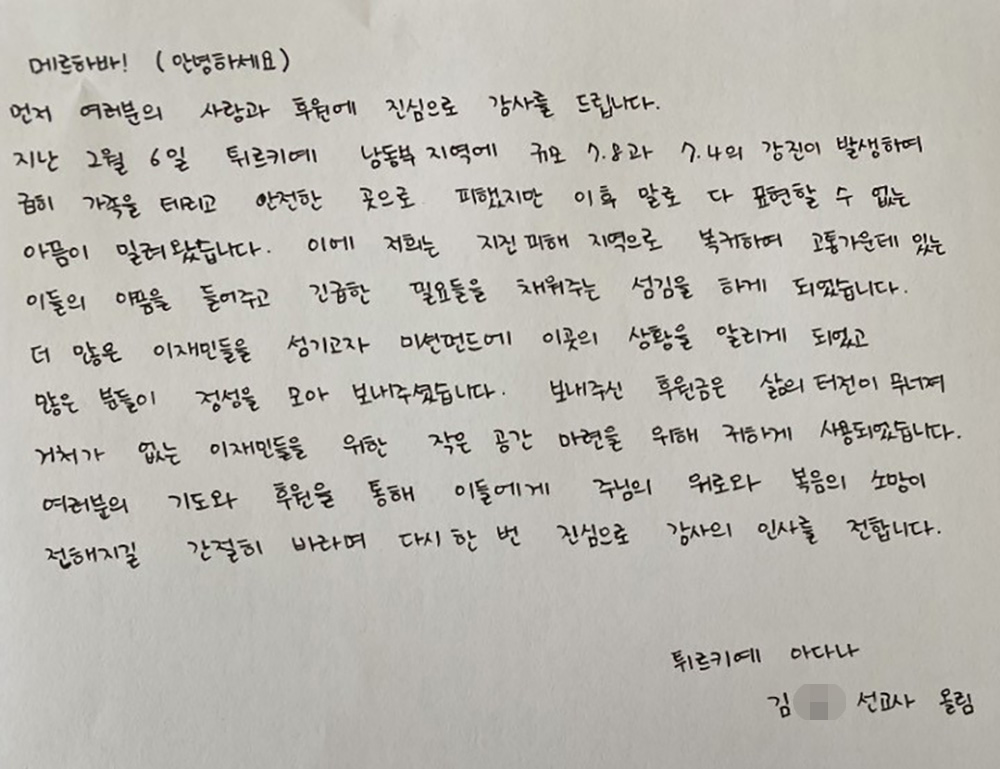 메르하바! (안녕하세요)
먼저 여러분의 사랑과 후원에 진심으로 감사를 드립니다.
지난 2월 6일 튀르키예 남동부 지역에 규모 7.8과 7.4의 강진이 발생하여
급히 가족을 데리고 안전한 곳으로 피했지만 이후 말로 다 표현할 수 없는
아픔이 밀려왔습니다. 이에 저희는 지진 피해 지역으로 복귀하여 고통가운데 있는
이들의 아픔을 들어주고 긴급한 필요들을 채워주는 섬김을 하게 되었습니다.
더 많은 이재민들을 섬기고자 미션펀드에 이곳의 상황을 알리게 되었고
많은 분들이 정성을 모아 보내주셨습니다. 보내주신 후원금은 삶의 터전이 무너져
거처가 없는 이재민들을 위한 작은 공간 마련을 위해 귀하게 사용되었습니다.
여러분의 기도와 후원을 통해 이들에게 주님의 위로와 복음의 소망이
전해지길 간절히 바라며 다시 한 번 진심으로 감사의 인사를 전합니다.
튀르키예 아다나
김 선교사 올림